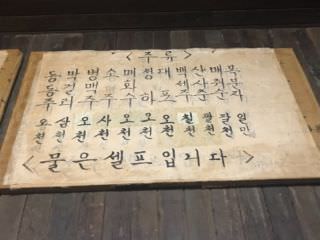 <주류>
동동주 오천
막걸리 삼천
병맥주 오천
소주 사천
매화수 오천
청하 오천
대포 오천
백세주 칠천
산사춘 팔천
매취순 팔천
복분자 일만
<물은 셀프입니다>